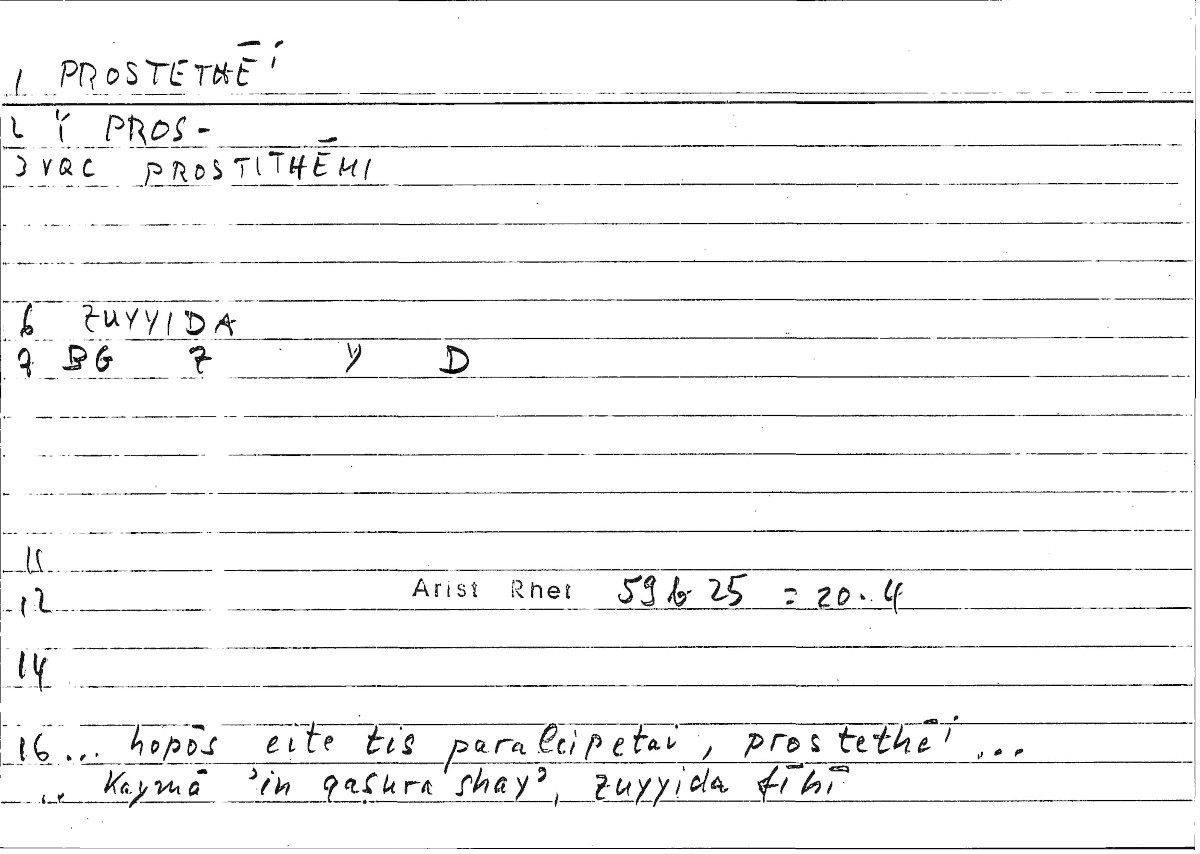 1 PROSTETHĒⁱ
2 Y PROS-
3 VQC PROSTITHĒMI
6 ZUYYIDA
7 BG Z Y D
11
12 Arist Rhet 59 b 25 = 20.4
14
16 ... hopōs eite tis paraleipetai, prostethēⁱ ...
.. Kaymā ʾin qaṣura shayʾ, zuyyida fīhī